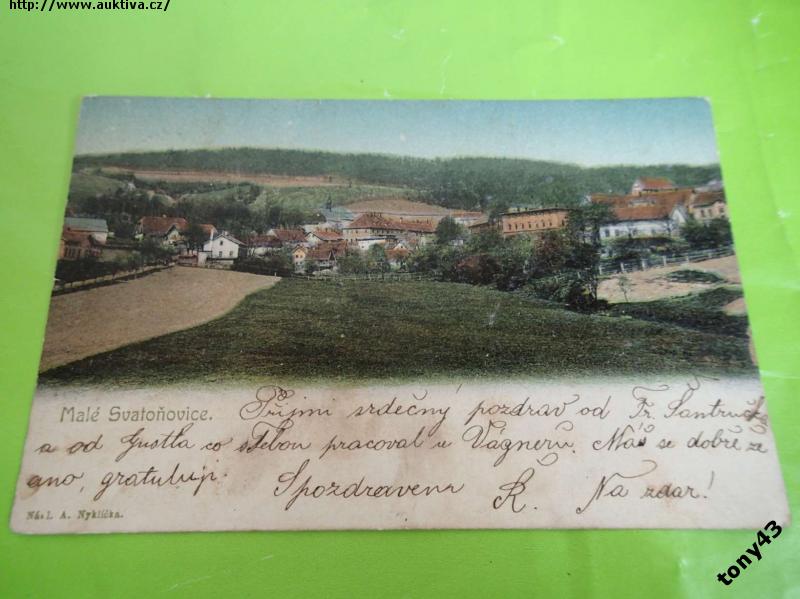 http://www.auktiva.cz/
Malé Svatoňovice. Přijmi srdečný pozdrav od Fr. Šantručk
a od Gustla co s Tebou pracoval u Vágnerů. Máš se dobře že
ano, gratuluji. Spozdravem Ř. Na zdar!
Nákl. A. Nyklíčka.
tony43